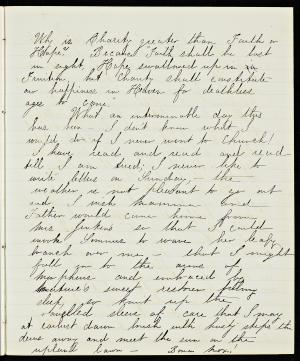 Why is Charity greater than Faith or
Hope? Because "Faith shall be lost
in sight, Hope swallowed up in
Fruition, but Charity shall constitute
our happiness in Heaven for deathless
ages to come."
What an interminable day this
has been – I don't know what I
would do if I never went to Church!
I have read and read and read
till I am tired, I never like to
write letters on Sunday, – the
weather is not pleasant to go out
and I wish Mamma and
Father would come home from
Mrs Jenkins so that I could
Somnus to wave her leafy
branch over me – that I might
fall into the arms of
Morpheus and embraced by
nature's sweet restorer balmy
sleep, so knit up the
ravelled sleeve of care that I may
at earliest dawn brush with hasty steps the
dews away and meet the sun on the
upland lawn –